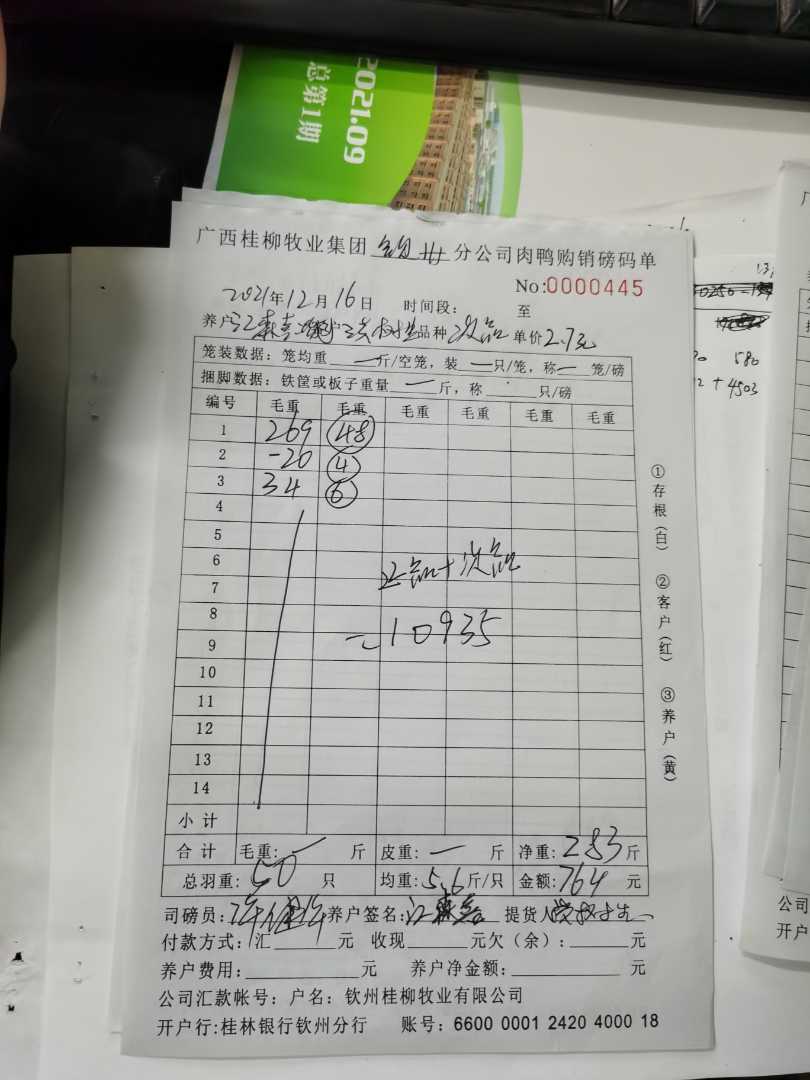 2021.09
总第1期
广西桂柳牧业集团 钦州 分公司肉鸭购销磅码单
No:0000445
2021年12月16日 时间段: 至
养户:江森喜 客户 品种 次品 单价 2.7元
笼装数据: 笼均重 一 斤/空笼, 装 一 只/笼, 称 一 笼/磅
捆脚数据: 铁筐或板子重量 一 斤, 称 只/磅
编号 毛重 毛重 毛重 毛重 毛重 毛重
1 269 48
2 -20 4
3 34 6
4
5
6 正品+次品
7
8
9 =10935
10
11
12
13
14
小计
合计 毛重: 一 斤 皮重: 一 斤 净重: 283斤
总羽重: 50 只 均重: 5.6斤/只 金额: 764 元
司磅员: 养户签名: 江森喜 提货人:
付款方式: 汇 元 收现 元欠(余): 元
养户费用: 元 养户净金额: 元
公司汇款帐号: 户名: 钦州桂柳牧业有限公司
开户行:桂林银行钦州分行 账号: 6600 0001 2420 4000 18
①存根(白) ②客户(红) ③养户(黄)
580
+4503
公司
开户